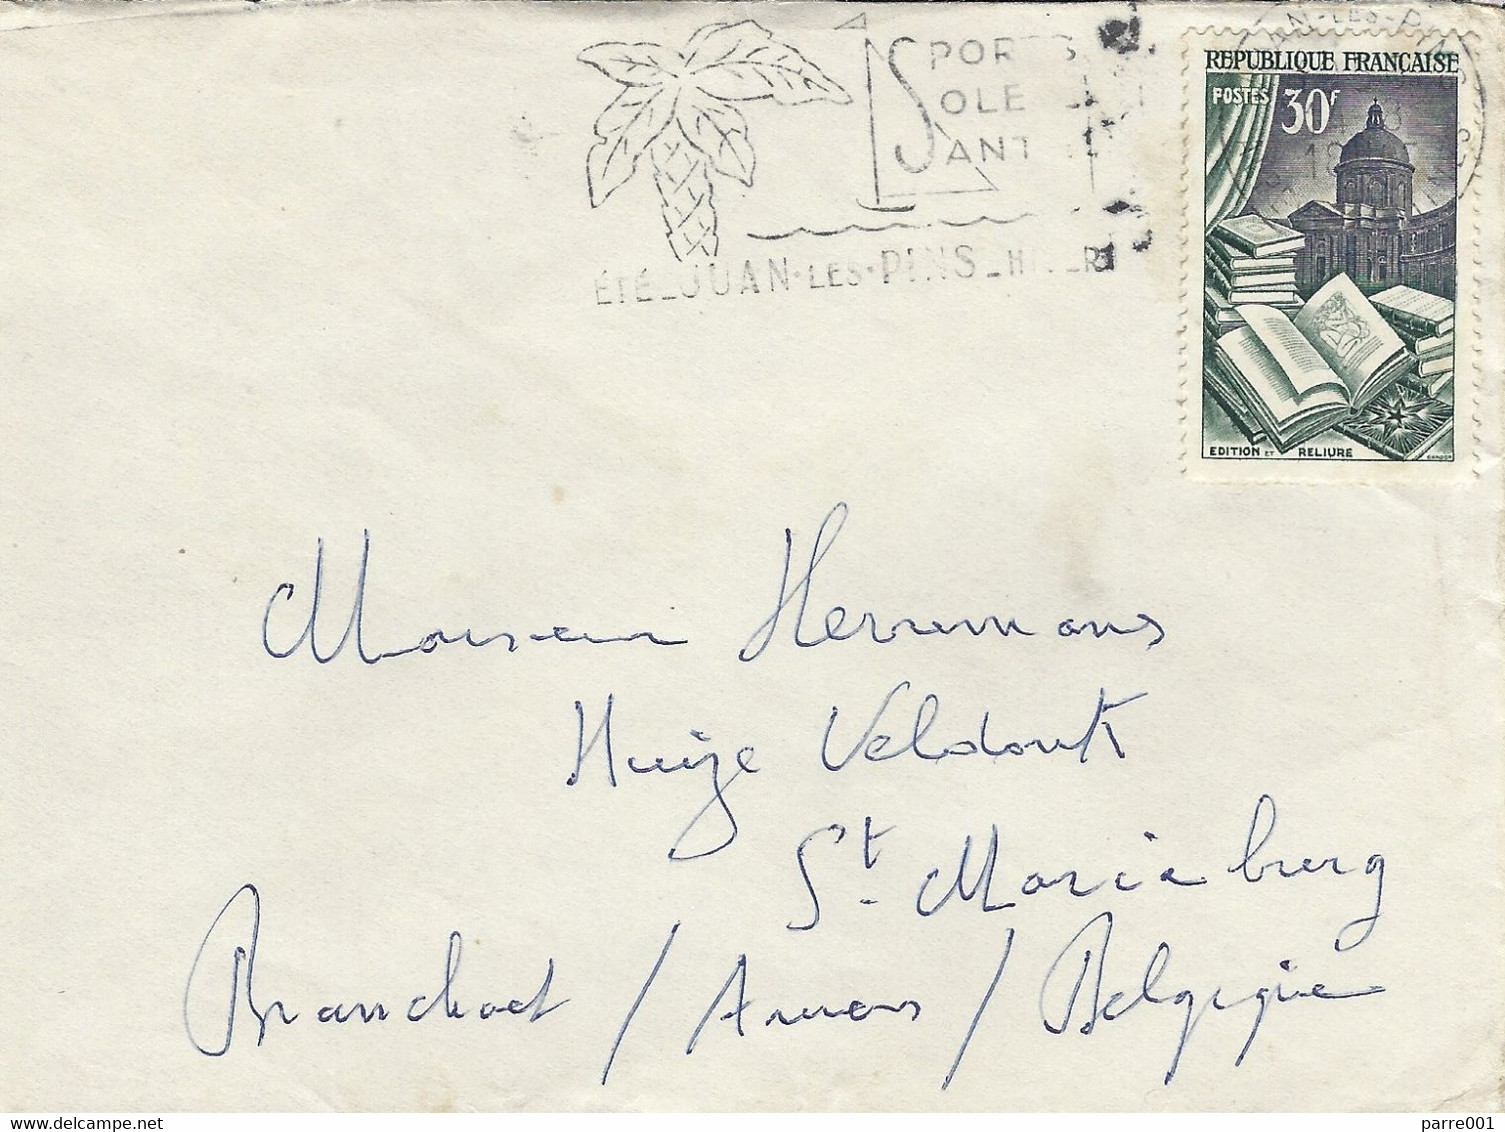 SPORTS
SOLEIL
SANTÉ
ÉTÉ_JUAN-LES-PINS_HIVER
RÉPUBLIQUE FRANÇAISE
POSTES 30F
EDITION ET RELIURE
GANDON
Monsieur Herremans
Huize Veldonk
St. Mariaburg
Branchaet / Anvers / Belgique
parre001